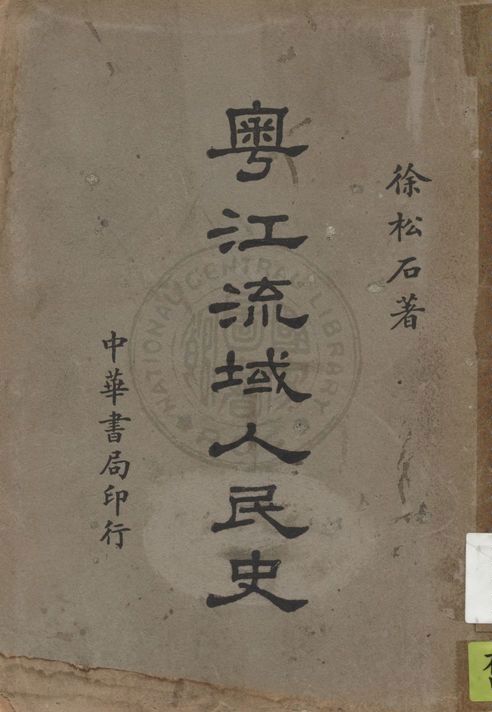 徐松石著
粤江流域人民史
中華書局印行
NATIONAL CENTRAL LIBRARY